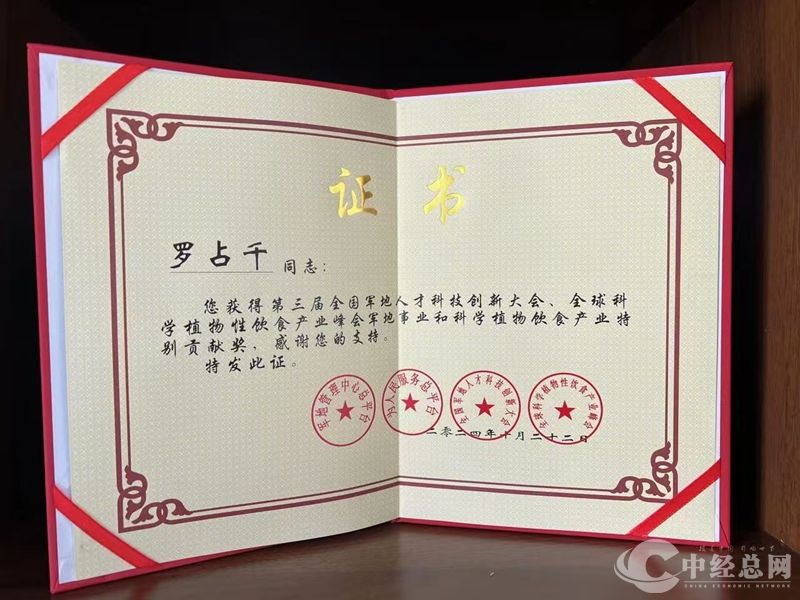 证书
罗占千 同志:
您获得第三届全国军地人才科技创新大会、全球科
学植物性饮食产业峰会军地事业和科学植物饮食产业特
别贡献奖,感谢您的支持。
特发此证。
军地管理中心总平台
为人民服务总平台
全国军地人才科技创新大会
全球科学植物性饮食产业峰会
二零二四年十月二十二日
中经总网
CHINA ECONOMIC NETWORK